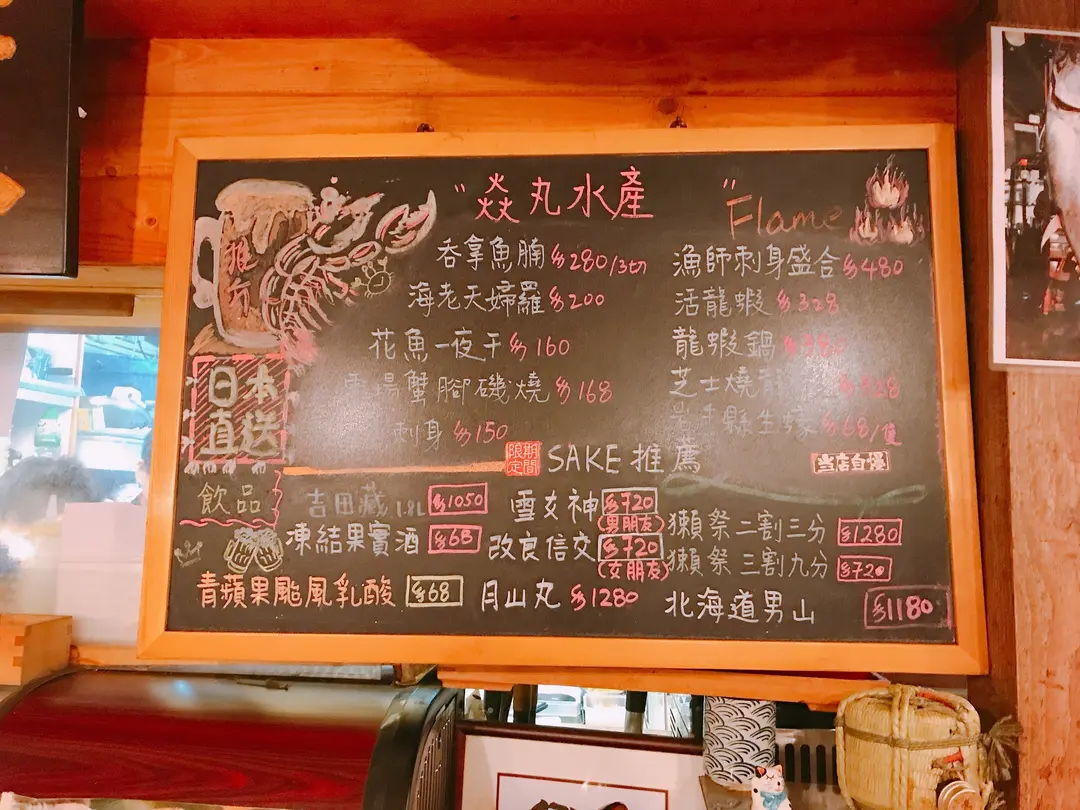 "焱丸水產"
Flame
吞拿魚腩 $280/3切
海老天婦羅 $200
花魚一夜干 $160
蟹腳磯燒 $168
刺身 $150
漁師刺身盛合 $480
活龍蝦 $328
龍蝦鍋
芝士燒
岩手縣生蠔 $68/隻
當店自慢
日本
直送
期間
限定
SAKE推薦
飲品
吉田藏 1.8L $1050
凍結果實酒 $68
青蘋果颱風乳酸 $68
雪女神 $720
(男朋友)
改良信交 $720
(女朋友)
月山丸 $1280
獺祭二割三分 $1280
獺祭三割九分 $720
北海道男山 $1180